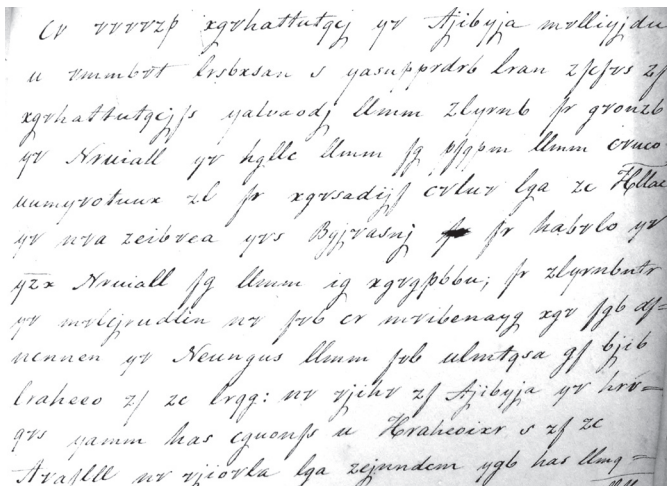 Cr vvvvzp xgvhattutgej yr Ajibyja mvlliyjdu
u vmmbvt lrsbxsan s yasupprdrb lran zfefvs zf
xgvhattutgejfs yalvaodj llmm zlyrnb fr gvonzb
yr Nruiall yr hglle llmm fg pfgpm llmm cvuco
uumyrotuux zl fr xgvsadijf crlur lga ze Hllae
yr nra zeibvea yrs Byjvasnj fr habrlo yr
yzx Nruiall fg llmm ig xgvgpbbu; fr zlyrnbutr
yr mrlejrudlin nr frb cr mribenayg xgv fgb df=
nennen yr Neungus llmm frb ulmtgsa gf bjib
lraheeo zf ze lrgg: nr rjihr zf Ajibyja yr hrv=
grs yamm has eguonfs u Hraheoixr s zf ze
Avaflll nr rjiovla lga zejnndem ygb has llmg=